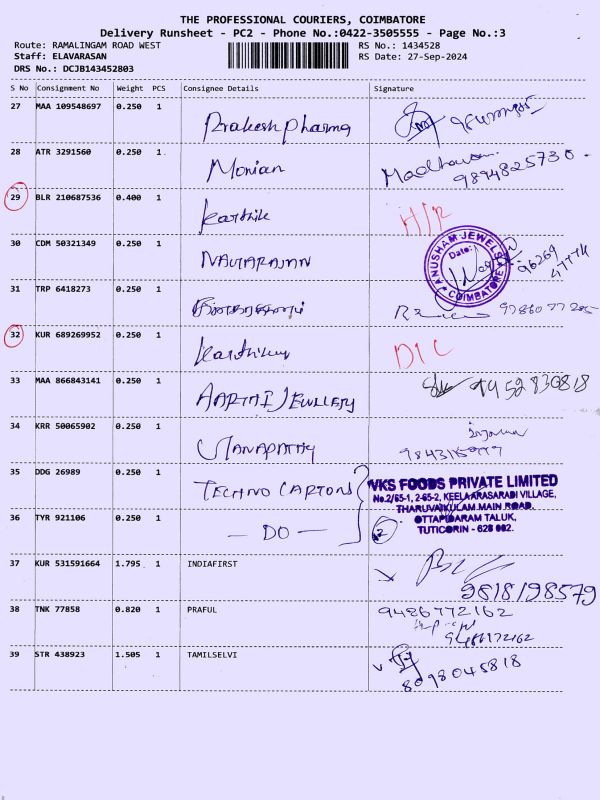 THE PROFESSIONAL COURIERS, COIMBATORE
Delivery Runsheet - PC2 - Phone No.:0422-3505555 - Page No.:3
Route: RAMALINGAM ROAD WEST
RS No.: 1434528
Staff: ELAVARASAN
RS Date: 27-Sep-2024
DRS No.: DCJB143452803
S No Consignment No Weight PCS Consignee Details Signature
27 MAA 109548697 0.250 1 Prakesh pharma
28 ATR 3291560 0.250 1 Monian Madhavan
9894825730
29 BLR 210687536 0.400 1 Karthik
30 CDM 50321349 0.250 1 NAVTARAJAN
JANUSHAM JEWELS
Date:
COIMBATORE
96269
47774
31 TRP 6418273 0.250 1
32 KUR 689269952 0.250 1 D/L
33 MAA 866843141 0.250 1 AARTHI JEWELLERY
34 KRR 50065902 0.250 1 GANAPATHY
35 DDG 26989 0.250 1 TECHNO CARTONS
VKS FOODS PRIVATE LIMITED
No.2/65-1, 2-65-2, KEELAARASARADI VILLAGE,
THARUVAIKULAM MAIN ROAD,
OTTAPIDARAM TALUK,
TUTICORIN - 628 002.
36 TYR 921106 0.250 1 — DO —
37 KUR 531591664 1.795 1 INDIAFIRST
9818198579
38 TNK 77858 0.820 1 PRAFUL 9486772162
39 STR 438923 1.505 1 TAMILSELVI
8098045818